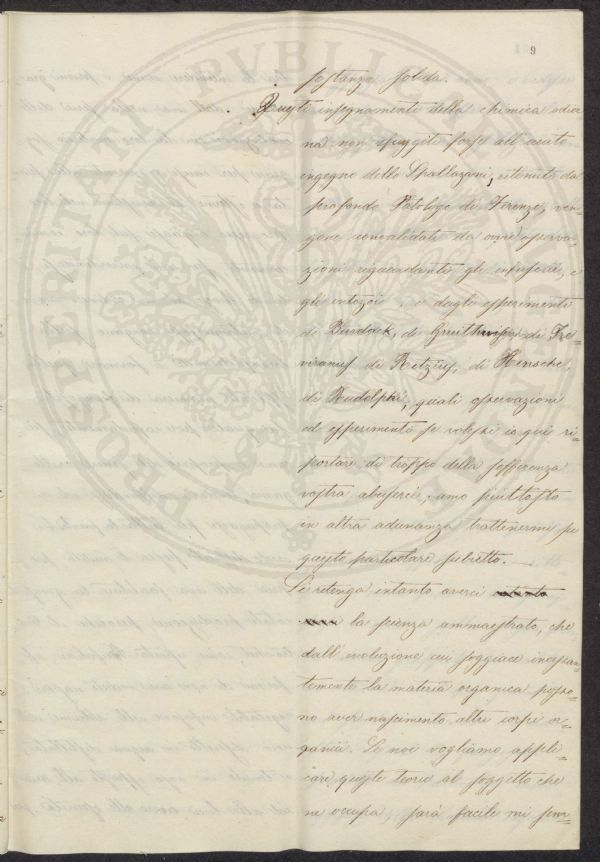 9
sostanza solida.
Questo insegnamento della chimica odier
na non sfuggito forse all'acuto
ingegno dello Spallazani, ritenuto da
profondo Patologo di Firenze, ven-
gono convalidati da varie osserva-
zioni riguardanti gli infusorî, e
gli entozoi, e dagli esperimenti
di Burdack, di Gruithuisen di Tre-
viranus di Retzius, di Hensche,
di Rudolphi, quali osservazioni
ed esperimenti se volessi io quì ri-
portare di troppo della sofferenza
vostra abuserei, amo piuttosto
in altra adunanza trattenermi su
questo particolare subietto.
Si ritenga intanto averci
la scienza ammaestrato, che
dall'evoluzione cui soggiace incessan-
temente la materia organica posso-
no aver nascimento altri corpi or-
ganici. Se noi vogliamo appli-
care queste teorie al soggetto che
ne occupa, sarà facile mi sem-
PROSPERITATI PVBLICAE